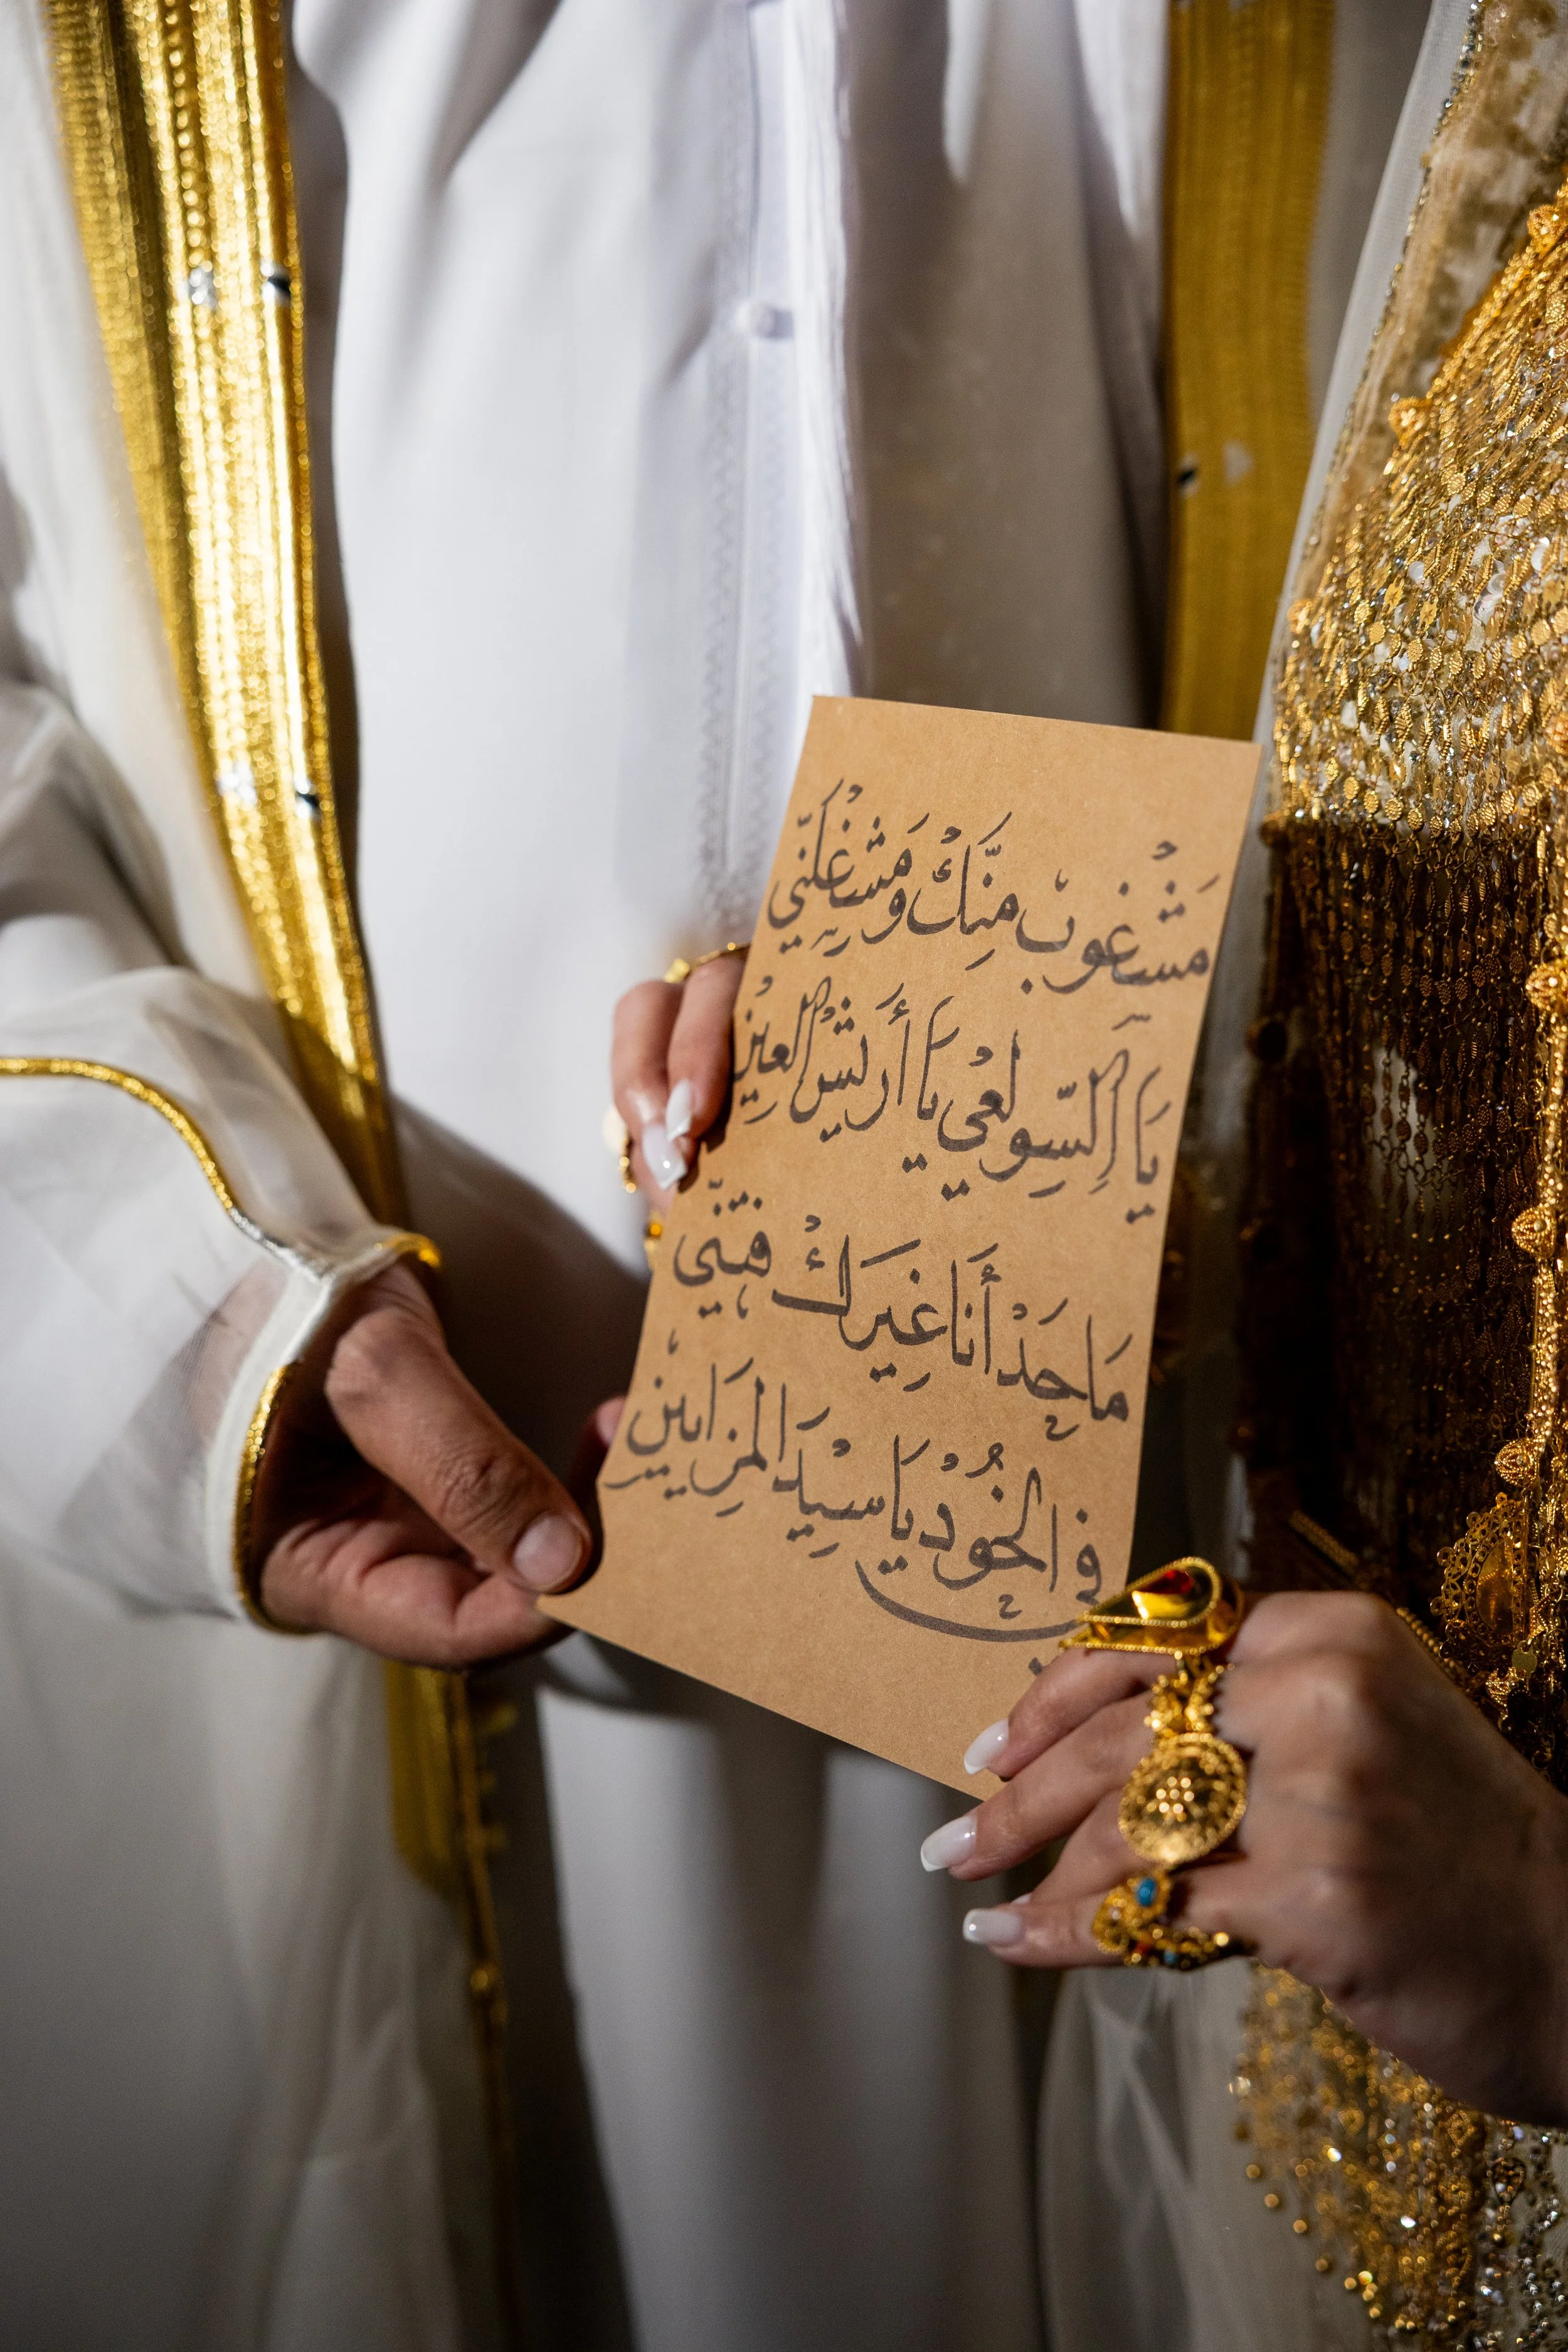 مَشْغُوبْ مِنَّكْ وَمَشْغِلَنّي
يَا آلسِّولَعْي يَا أَرْيَشْ آلعِيْن
مَا حَدْ أَنَا غَيرَكْ فِتَنّي
في الخُوْد يَا سِيْدَ المِزَايِيْن